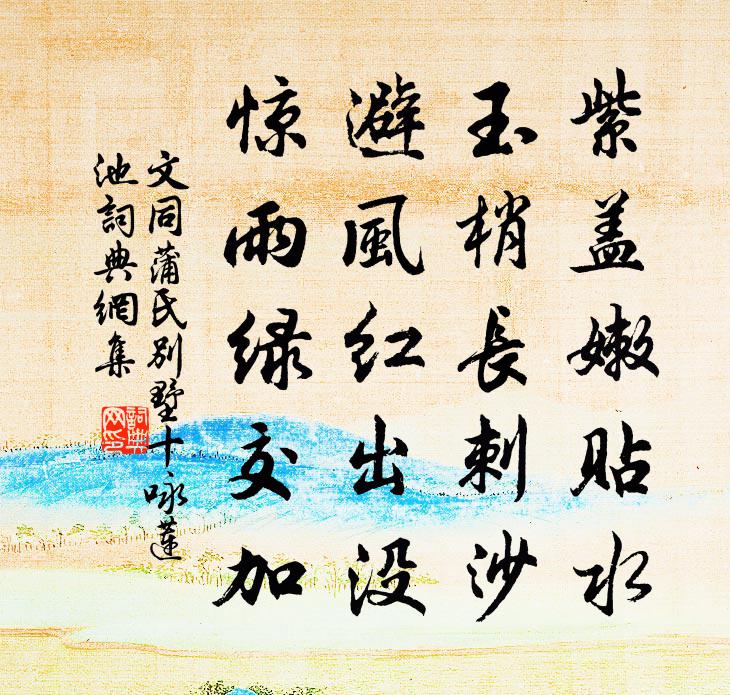 紫盖嫩貼水
玉梢長刺沙
避風紅出没
惊雨绿交加
文同蒲氏别墅十咏蓮
池詞典網集
詞典网印